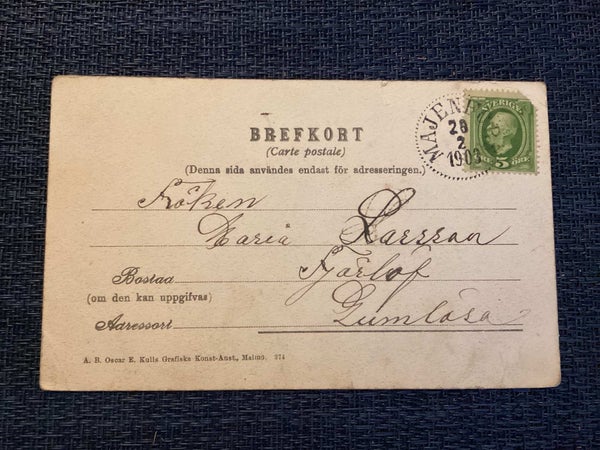 BREFKORT
(Carte postale)
(Denna sida användes endast för adresseringen.)
SVERIGE
5 ÖRE
MAJEN
28
2
1903
Fröken
Maria Larsson
Bostad Fjärlöf
(om den kan uppgifvas)
Adressort Gumlösa
A. B. Oscar E. Kulls Grafiska Konst-Anst., Malmö. 374